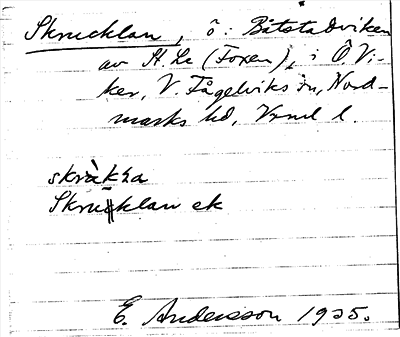 Skrucklan, ö: Båtstadviken
av St. Le (Foxen), i Ö Vi-
ker, V. Fågelviks sn, Nord-
marks hd, Vrml l.
skràkła
Skrucklan ek
E. Andersson 1925.